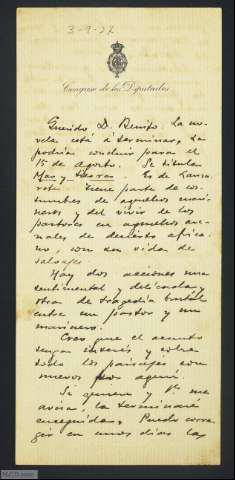 3-9-22
Congreso de los Diputados
Querido D. Benito: La no-
vela está á terminar, La
podría concluir para el
15 de Agosto. Se titula
Mar y tierra. Es de Lanza-
rote. Tiene parte de cos-
tumbres de aquellos mari-
neros y del vivir de los
pastores en aquellos are-
nales de desierto africa-
no, con su vida de
salvajes
Hay dos acciones una
sentimental y delicada y
otra de tragedia brutal
entre un pastor y un
marinero.
Creo que el asunto
tenga interés y sobre
todo los paisajes son
nuevos aquí.
Si quieren y Vd. me
avisa, la terminaré
enseguida. Puedo corre-
gir en unos días las